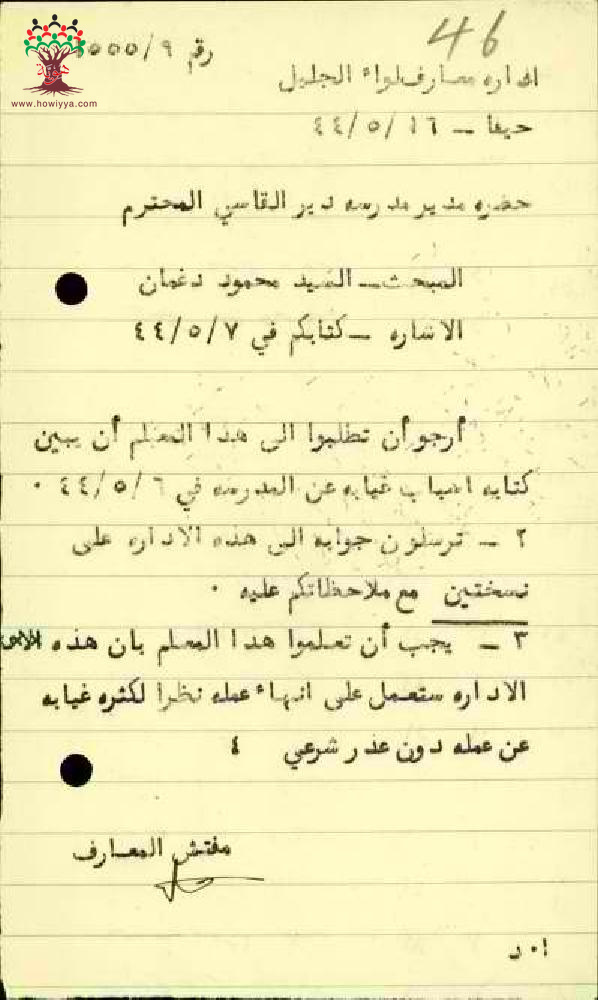 46
رقم ٥٥٥٥/٩
اداره معارف لواء الجليل
حيفا – ١٦ /٤٤/٥
حضره مدير مدرسه دير القاسي المحترم
المبحث – السيد محمود دغمان
الاشاره – كتابكم في ٤٤/٥/٧
أرجو أن تطلبوا الى هذا المعلم أن يبين
كتابه اسباب غيابه عن المدرسه في ٤٤/٥/٦ ٠
٢ – ترسلون جوابه الى هذه الاداره على
نسختين مع ملاحظاتكم عليه ٠
٣ – يجب أن تعلموا هذا المعلم بان هذه
الاداره ستعمل على انهاء عمله نظرا لكثره غيابه
عن عمله دون عذر شرعي ٤
مفتش المعارف
ا٠د
www.howiyya.com